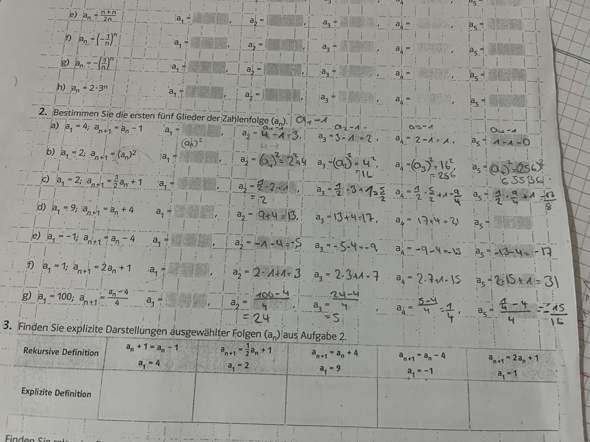 e) aₙ = (n+n)/2n   a₁ = , a₂ = , a₃ = , a₄ = , a₅ =
f) aₙ = (-1/n)ⁿ   a₁ = , a₂ = , a₃ = , a₄ = , a₅ =
g) aₙ = -   a₁ = , a₂ = , a₃ = , a₄ = , a₅ =
h) aₙ = 2·3ⁿ   a₁ = , a₂ = , a₃ = , a₄ = , a₅ =
2. Bestimmen Sie die ersten fünf Glieder der Zahlenfolge (aₙ).
a) a₁ = 4; aₙ₊₁ = aₙ - 1   a₁ = , a₂ = 4-1=3, a₃ = 3-1=2, a₄ = 2-1=1, a₅ = 1-1=0
b) a₁ = 2; aₙ₊₁ = (aₙ)²   a₁ = (aₙ)², a₂ = , a₃ = =16, a₄ = =256, a₅ =
c) a₁ = 2; aₙ₊₁ = ½aₙ + 1   a₁ = , a₂ = ½·2+1 =2, a₃ = , a₄ = , a₅ =
d) a₁ = 9; aₙ₊₁ = aₙ + 4   a₁ = , a₂ = 9+4=13, a₃ = 13+4=17, a₄ = 17+4=21, a₅ =
e) a₁ = -1; aₙ₊₁ = aₙ - 4   a₁ = , a₂ = -1-4=-5, a₃ = -5-4=-9, a₄ = -9-4=-13, a₅ = -13-4=-17
f) a₁ = 1; aₙ₊₁ = 2aₙ + 1   a₁ = , a₂ = 2·1+1=3, a₃ = 2·3+1=7, a₄ = 2·7+1=15, a₅ = 2·15+1=31
g) a₁ = 100; aₙ₊₁ = (aₙ-4)/4   a₁ = , a₂ = (100-4)/4 =24, a₃ = (24-4)/4 =5, a₄ = (5-4)/4 = 1/4, a₅ = (1/4-4)/4 = -15/16
3. Finden Sie explizite Darstellungen ausgewählter Folgen (aₙ) aus Aufgabe 2.
Rekursive Definition   aₙ + 1 = aₙ - 1   aₙ₊₁ = ½aₙ + 1   aₙ₊₁ = aₙ + 4   aₙ₊₁ = aₙ - 4   aₙ₊₁ = 2aₙ + 1
a₁ = 4   a₁ = 2   a₁ = 9   a₁ = -1   a₁ = 1
Explizite Definition
Finden Sie